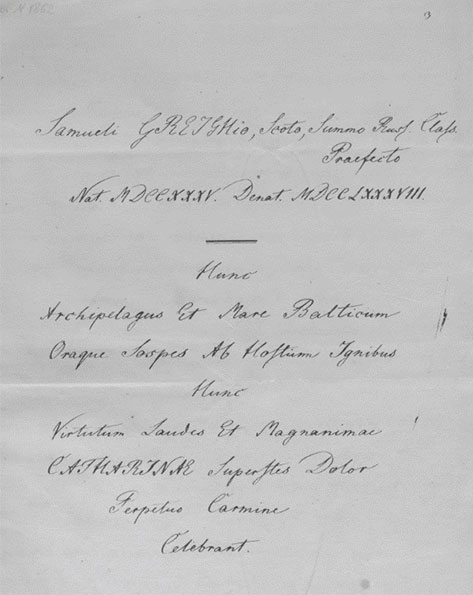 3
Samueli GREIGHio, Scoto, Summo Russ. Class.
Praefecto
Nat. MDCCXXXV. Denat. MDCCLXXXVIII.
Hunc
Archipelagus Et Mare Balticum
Oraque Sospes Ab Hostium Ignibus
Hunc
Virtutum Laudes Et Magnanimae
CATHARINAE Superstes Dolor
Perpetuo Carmine
Celebrant.